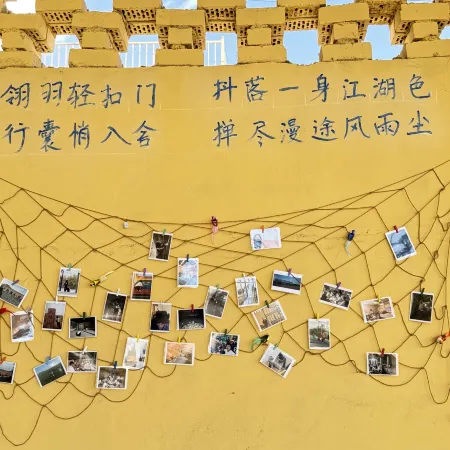 翎羽轻扣门 抖落一身江湖色
行囊悄入舍 掸尽漫途风雨尘